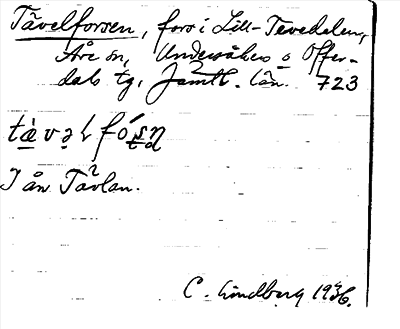 Tävelforsen, fors i Lill-Tevedalen,
Åre sn, Undersåkers o Offer-
dals tg, Jämtl. län. 723
tàvəɫfós̠n
I ån Tävlan.
C. Lindberg 1936.